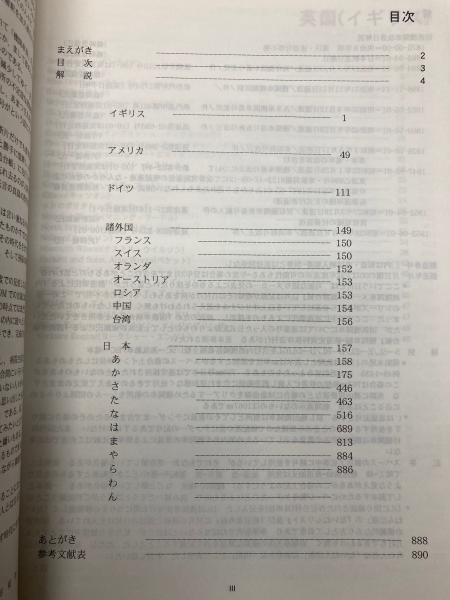 目次
まえがき 2
目　次 3
解　説 4
イギリス 1
アメリカ 49
ドイツ 111
諸外国 149
フランス 150
スイス 150
オランダ 152
オーストリア 153
ロシア 153
中国 154
台湾 156
日　本 157
あ 158
か 175
さ 446
た 463
な 516
は 689
ま 813
や 884
ら 886
わ
ん
あとがき 888
参考文献表 890
III